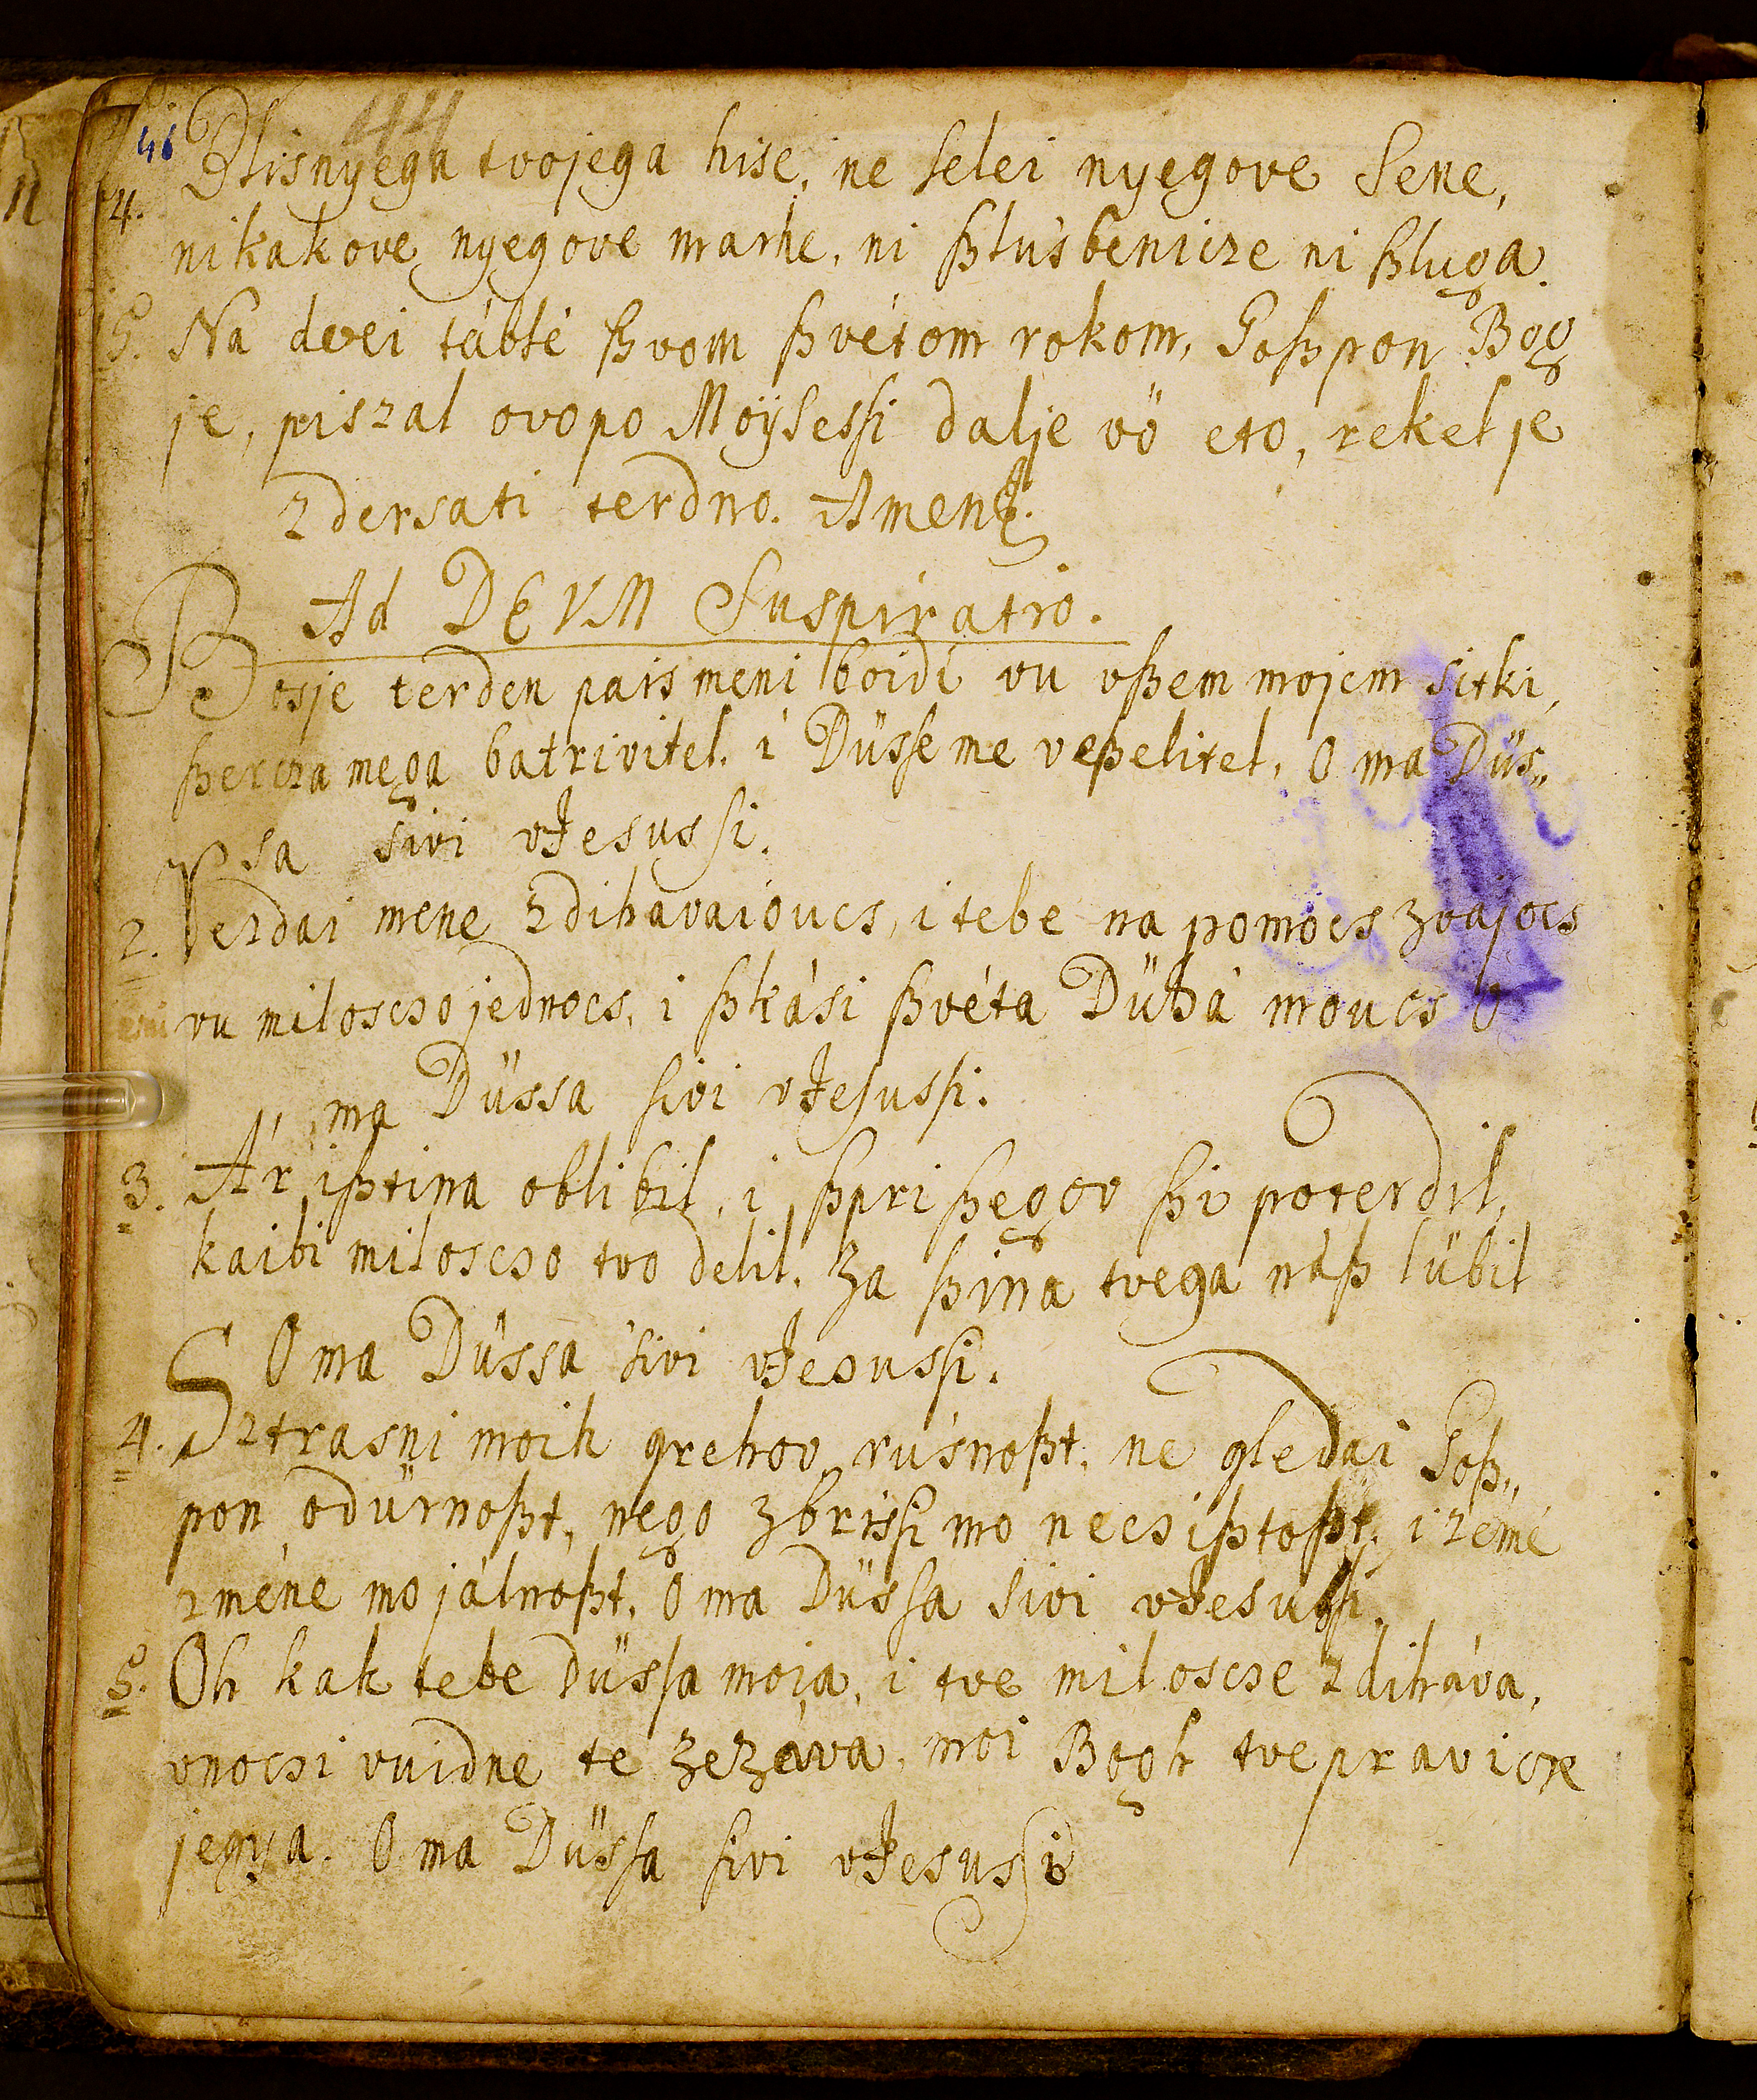 44
46
14. Blisnyega tvojega hise, ne selei nyegove Sene,
nikakove nyegove marhe, ni ßlusbenicze ni ßluga.
15. Na dvei táblé ßvom ßvétom rokom, Goßpon Bog
je, piszal ovo po Moÿsessi dalje vö eto, rekel je
zdersati terdno. Amen.
Ad DEVM Suspiratio.
Bosje terden pais meni boidi vu vßem mojem sitki,
ßercza mega batrivitel. i Düsse me veßelitel, O ma Düs„
sa sivi vJesussi.
2. Verdai mene zdihavaioucs, i tebe na pomocs zvajocs
vu miloscso jednocs, i ßkási ßvéta Dühá moucs O
ma Düssa sivi vJesussi.
3. Ár ißtina oblibil, i ßprißeggov ßi poterdil,
kaibi miloscso tvo delil, za ßina tvega náß lübil
O ma Düssa sivi vJesussi.
4. Sztrasni moih grehov rusnoßt, ne gledai Goß„
pon odürnoßt, nego zbrissi mo necsißtoßt, i zemé
zméne mo jálnoßt, O ma Düssa sivi vJesussi.
5. Oh kak tebe Düssa moja, i tve miloscse zdiháva,
vnocsi vuidne te zezáva, moi Bogh tve pravicze
jegya. O ma Düssa sivi vJesussi